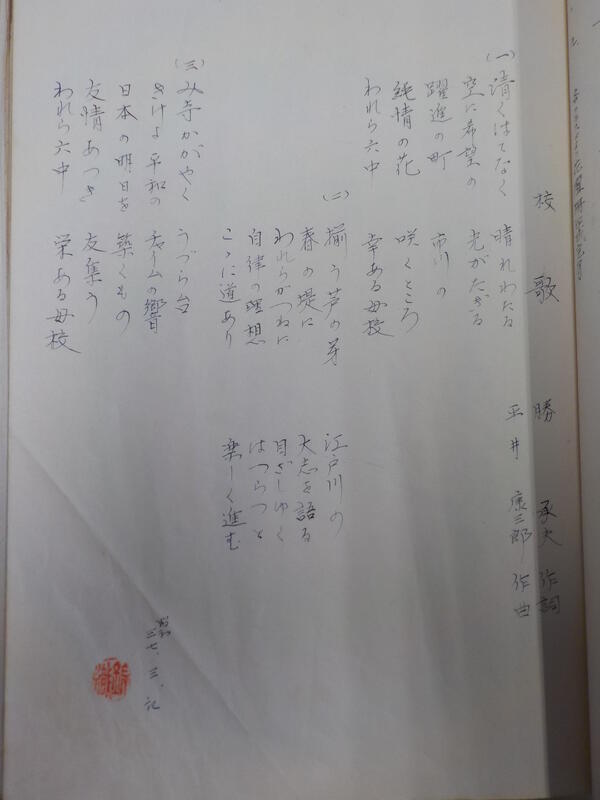 校歌
勝 承夫 作詞
平井 康三郎 作曲
(一) 清くはてなく 晴れわたる
空に希望の 光がたぎる
躍進の町 市川の
純情の花 咲くところ
われら六中 幸ある母校
(二) 揃う芦の芽 江戸川の
春の堤に 大志を語る
われらがつねに 目ざしゆく
自律の理想 はつらつと
こゝに道あり 楽しく進む
(三) み寺かがやく うづら台
きけよ平和の チャイムの響
日本の明日を 築くもの
友情あつき 友集う
われら六中 栄ある母校
昭和
三七、三、記